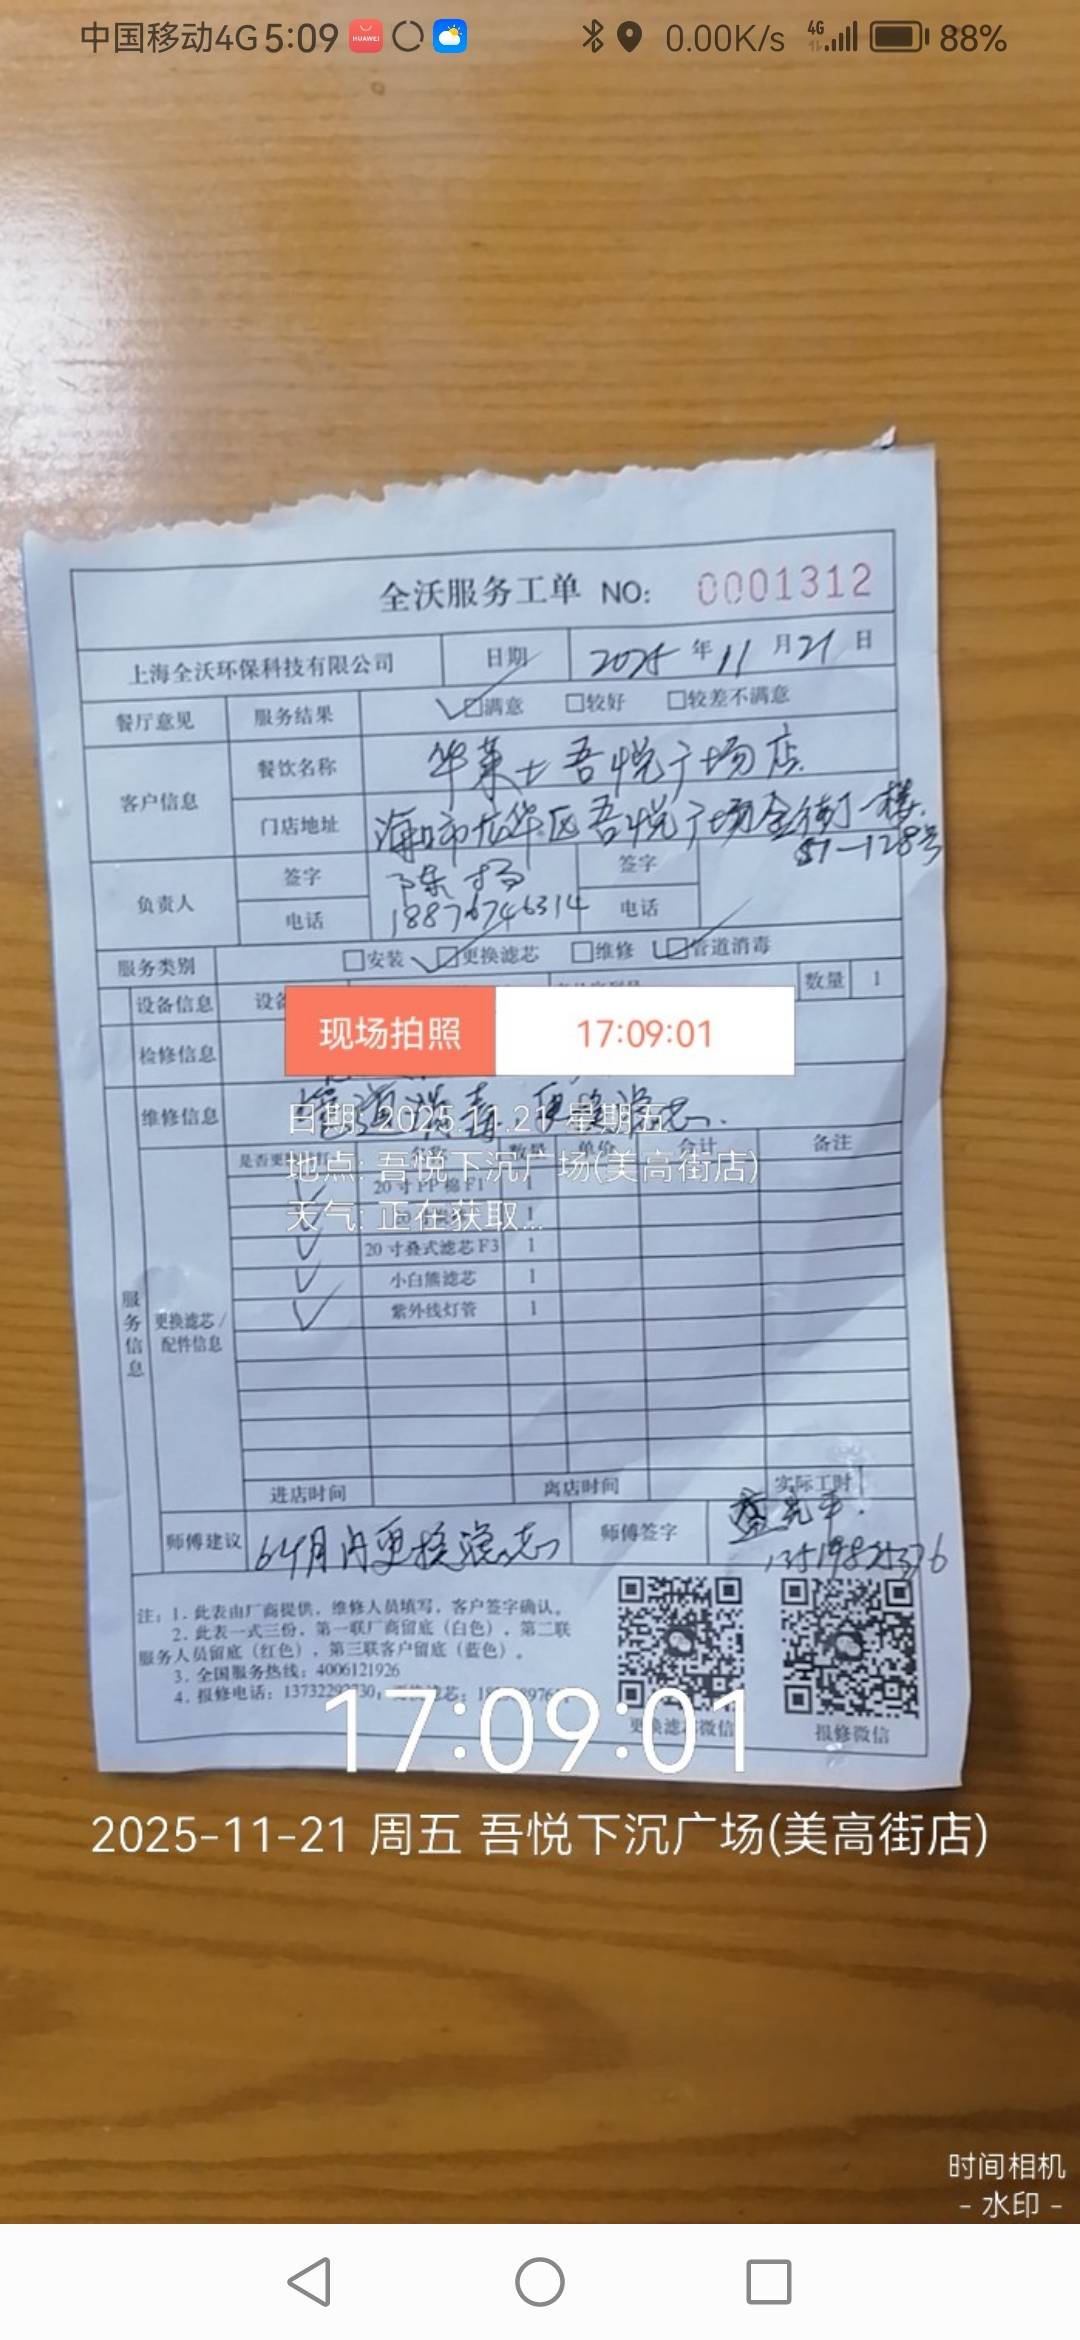 中国移动4G 5:09 HUAWEI 0.00K/s 4G 88%
全沃服务工单 NO: 0001312
上海全沃环保科技有限公司 日期 2025 年 11 月 21 日
餐厅意见 服务结果 满意 较好 较差不满意
客户信息 餐饮名称 华莱士吾悦广场店
门店地址 海口市龙华区吾悦广场金街一楼
S1-128号
负责人 签字 陈扬 签字
电话 18876746314 电话
服务类别 安装 更换滤芯 维修 管道消毒
设备信息 数量 1
现场拍照 17:09:01
检修信息
维修信息 管道消毒,更换滤芯.
日期: 2025.11.21 星期五
数量 单价 合计 备注
地点: 吾悦下沉广场(美高街店)
20寸PP棉F1 1
天气: 正在获取...
1
20寸叠式滤芯F3 1
小白熊滤芯 1
紫外线灯管 1
服务信息 更换滤芯/配件信息
进店时间 离店时间 实际工时
师傅建议 6个月内更换滤芯 师傅签字
注:1.此表由厂商提供,维修人员填写,客户签字确认。
2.此表一式三份,第一联厂商留底(白色),第二联
服务人员留底(红色),第三联客户留底(蓝色)。
3.全国服务热线:4006121926
4.报修电话:
更换滤芯微信 报修微信
17:09:01
2025-11-21 周五 吾悦下沉广场(美高街店)
时间相机
- 水印 -